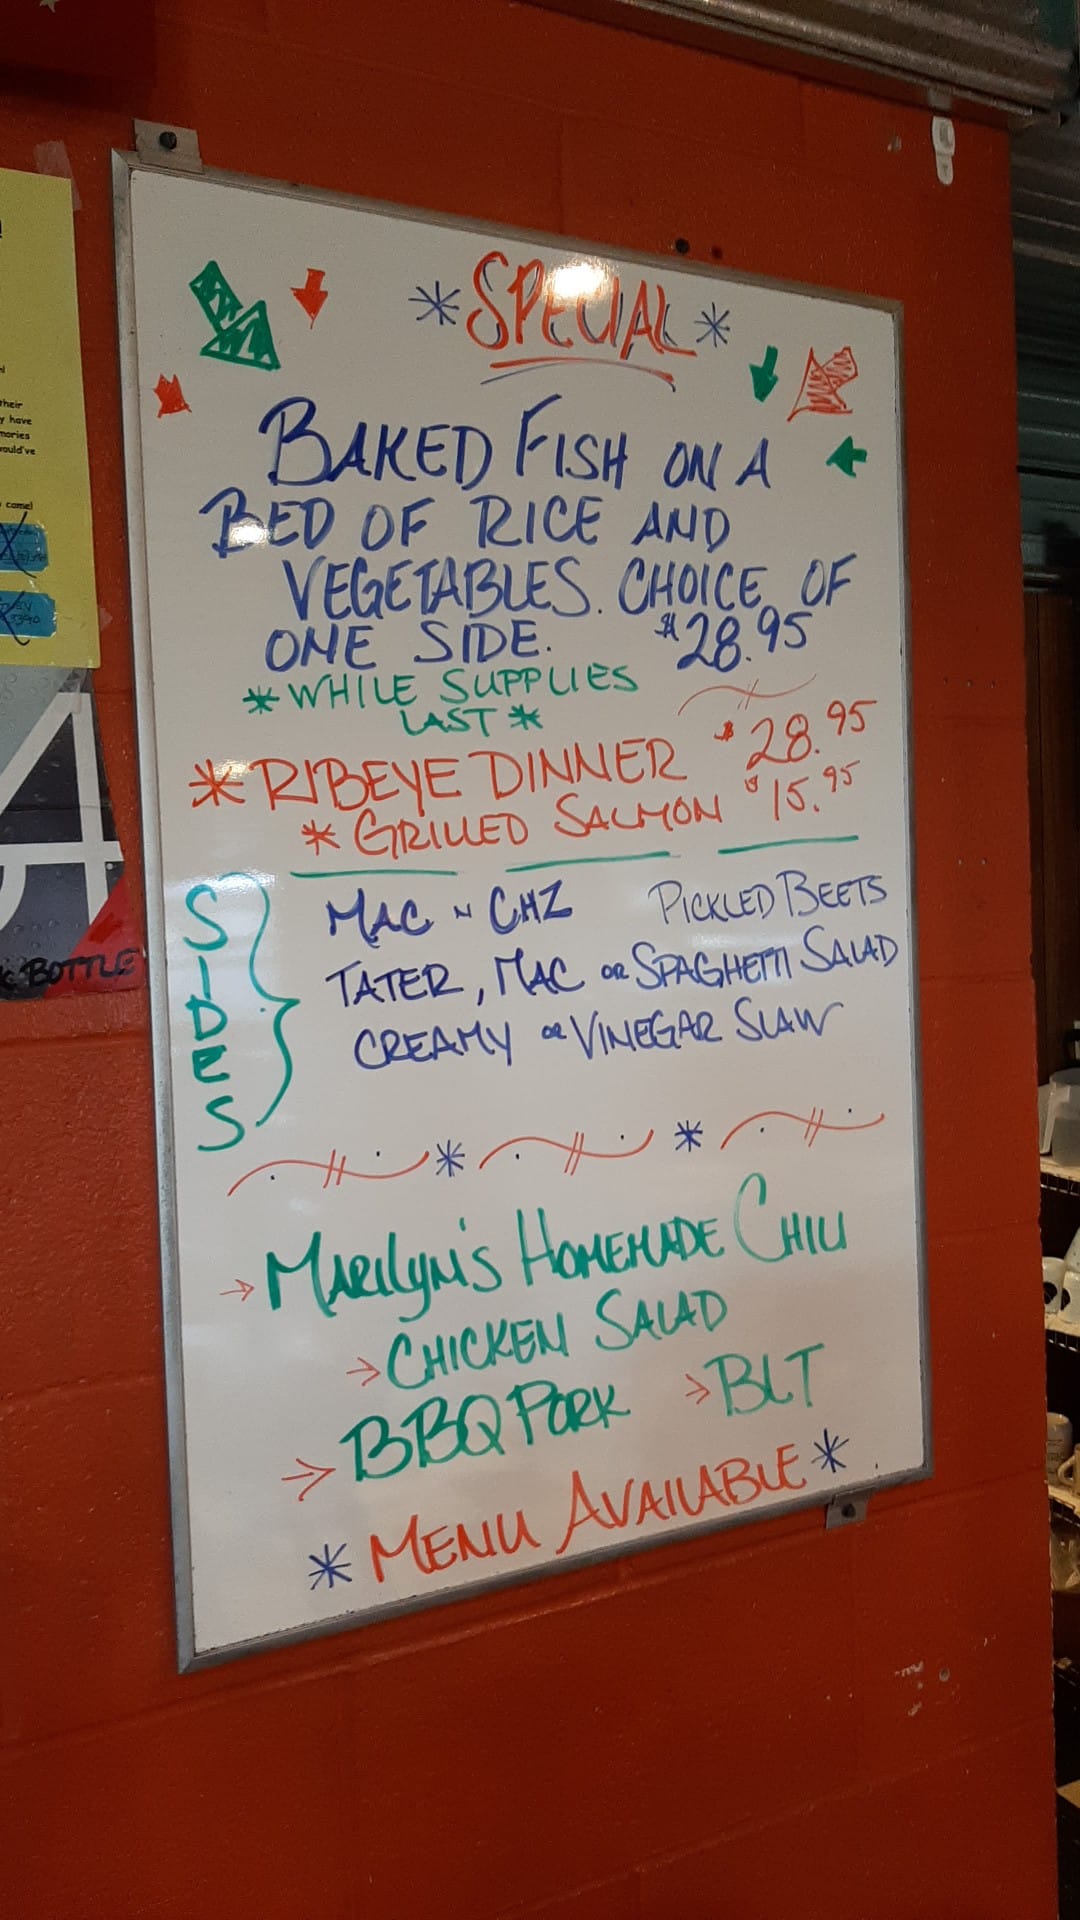 *SPECIAL*
BAKED FISH ON A
BED OF RICE AND
VEGETABLES. CHOICE OF
ONE SIDE. $28.95
*WHILE SUPPLIES
LAST*
*RIBEYE DINNER $28.95
*GRILLED SALMON $15.95
SIDES
MAC N CHZ PICKLED BEETS
TATER, MAC OR SPAGHETTI SALAD
CREAMY OR VINEGAR SLAW
→MARILYN'S HOMEMADE CHILI
→CHICKEN SALAD
→BBQ PORK →BLT
*MENU AVAILABLE*
their
y have
mories
ould've
come!
BOTTLE